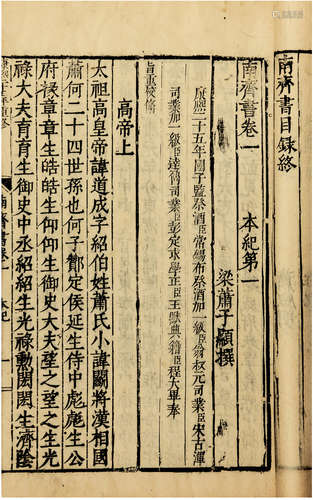 南齊書目録終
南齊書卷一　本紀第一
梁蕭子顯撰
康熙二十五年國子監祭酒臣常錫布祭酒加一級臣翁叔元司業臣宋古渾
司業加一級臣達鼐司業臣彭定求學正臣王默典籍臣程大畢奉
旨重較修
高帝上
太祖高皇帝諱道成字紹伯姓蕭氏小諱鬬將漢相國
蕭何二十四世孫也何子酇定侯延生侍中彪彪生公
府掾章章生皓皓生仰仰生御史大夫望之望之生光
祿大夫育育生御史中丞紹紹生光祿勳閎閎生濟陰
南齊書卷一　本紀　一